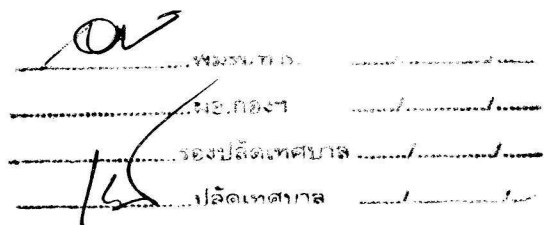 ผอ.กองฯ ...../...../.....
รองปลัดเทศบาล ...../...../.....
ปลัดเทศบาล ...../...../.....